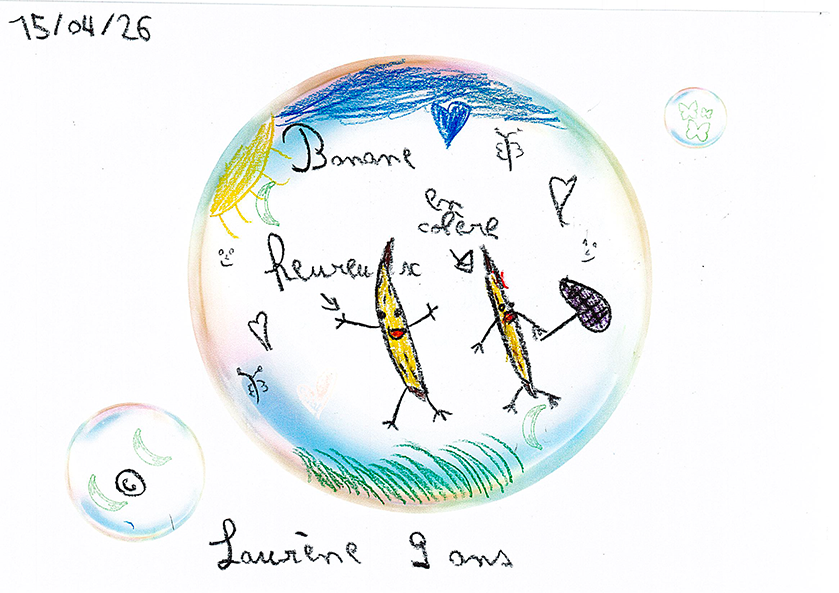 15/04/26
Banane
en
colère
heureux
©
Laurène 9 ans